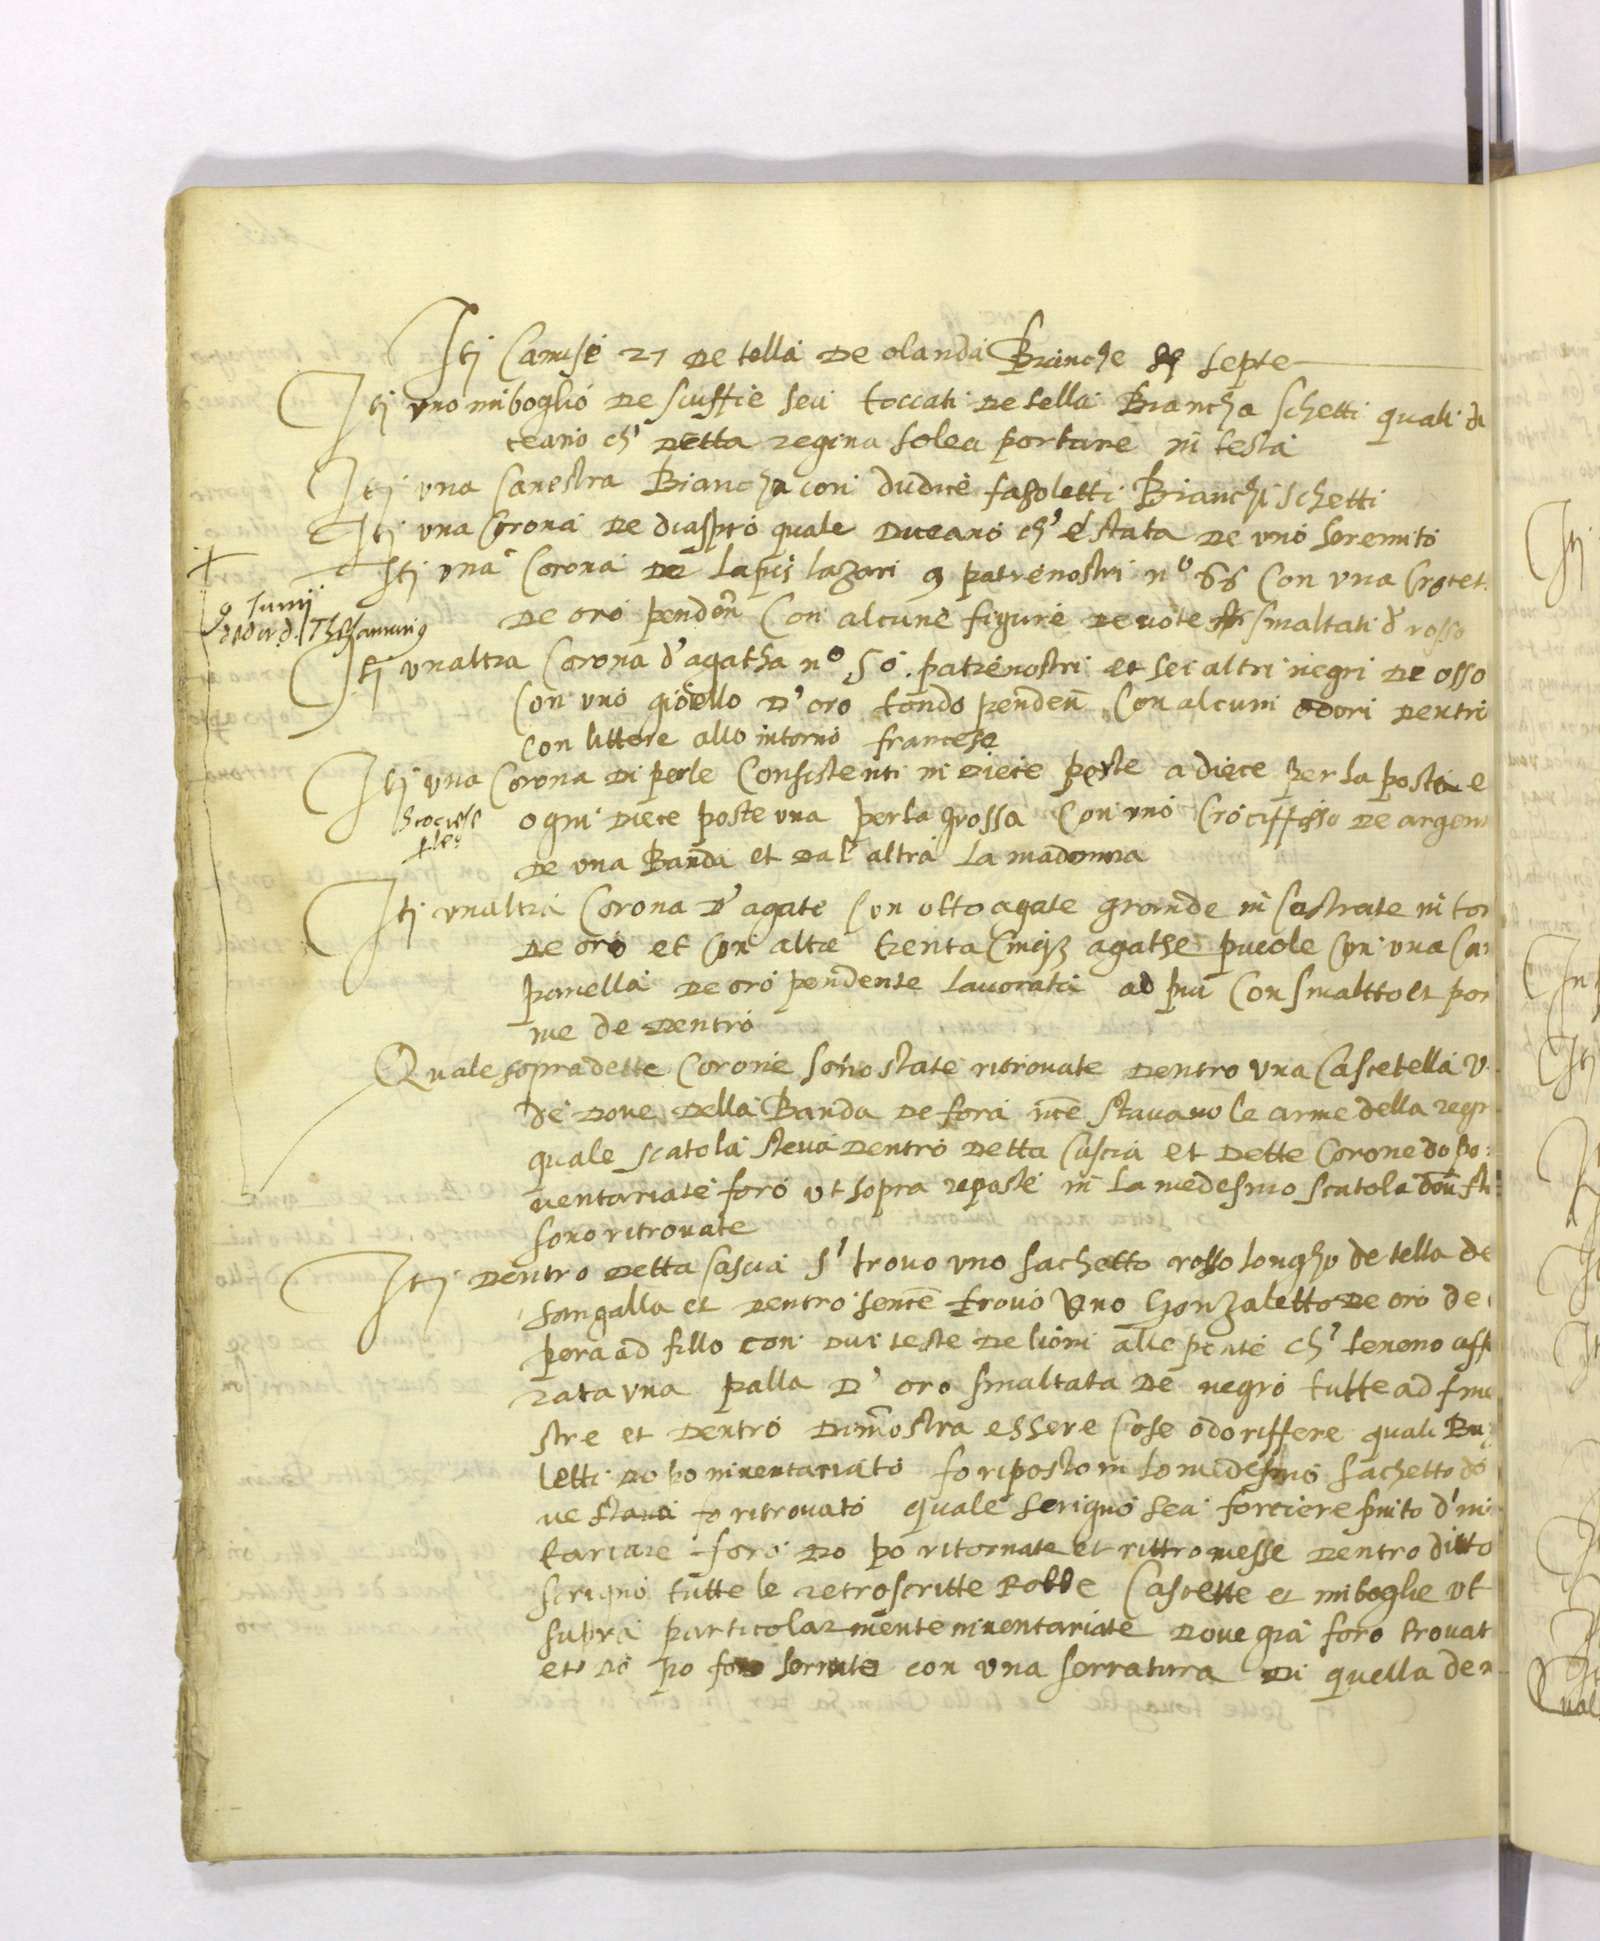 Itj Camise 27 de tella de olanda Bianche septe
Itj uno inboglio de scuffie seu toccati de tella Biancha schetti quali di
ceano ch' detta regina solea portare in testa
Itj una Canestra Biancha con dudice fazoletti Bianchi schetti
Itj una Corona de diaspro quale diceano ch' e stata de uno seremito
Itj una Corona de lapis lazari patrenostri n° 66 Con una Crocet
de oro penden Con alcune figure devote smaltati d' rosso
9 Junij
Itj unaltra Corona d'agatha n° 50 patrenostri et sei altri negri de osso
Con uno gioiello d'oro tondo penden Con alcuni odori dentri
con littere allo intorno francese
Itj una Corona di perle Consistenti in diece poste a diece per la posta e
ogni diece poste una perla grossa Con uno Crociffisso de argen
de una Banda et dal' altra la madonna
Itj unaltra Corona d'agate Con otto agate grande in Castrate in tor
de oro et Con altre trenta Cinq3 agathe piccole Con una Cam
panella de oro pendente lavorata ad Con smaltto et
me de dentro
Quale sopradette Corone sono state ritrovate dentro una Cascetella V
de dove della Banda de fora nce stavano le arme della regi
quale scatola steva dentro detta Cascia et dette Corone do po
ventariate foro ut sopra reposte in la medesmo scatola
sono ritrovate
Itj dentro detta Cascia s' trovo uno sachetto rosso longho de tella de
sangalla et dentro sence trovo Uno Gonzaletto de oro de
pera ad fillo con dui teste de lioni alle ponte ch' teneno aff
rata una palla d' oro smaltata de negro tutte ad fine
stre et dentro dimostra essere Cose odoriffere quali
letti do po inventariato fo riposto in lo medesmo sachetto do
ve stava fo ritrovato quale scrigno seu forciere finito d'in
tariare foro do po ritornate et rittromesse dentro ditto
scrigno tutte le retroscritte Robbe Cascette et inboglie ut
supra particolarmente inventariate dove gia foro trovat
et do po foro serrate con una serratura di quella de